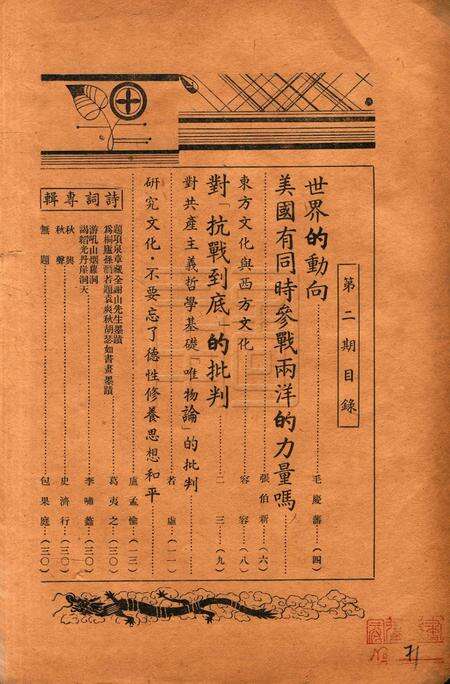 第二期目錄
世界的動向……毛慶藩…(四)
美國有同時參戰兩洋的力量嗎……張伯新…(六)
東方文化與西方文化……容容…(八)
對「抗戰到底」的批判……二三…(九)
對共產主義哲學基礎「唯物論」的批判……若虛(一一)
研究文化·不要忘了德性修養思想和平……盧孟愉…(一三)
詩詞專輯
題項泉章藏全謝山先生墨蹟
為桐廬孫翯者題袁爽秋胡瑟如書畫墨蹟……葛夷之…(三〇)
游吼山烟蘿洞
謁韜光丹岸洞天……李嘯盦…(三〇)
秋興
秋聲……史濟行…(三〇)
無題……包果庭…(三〇)